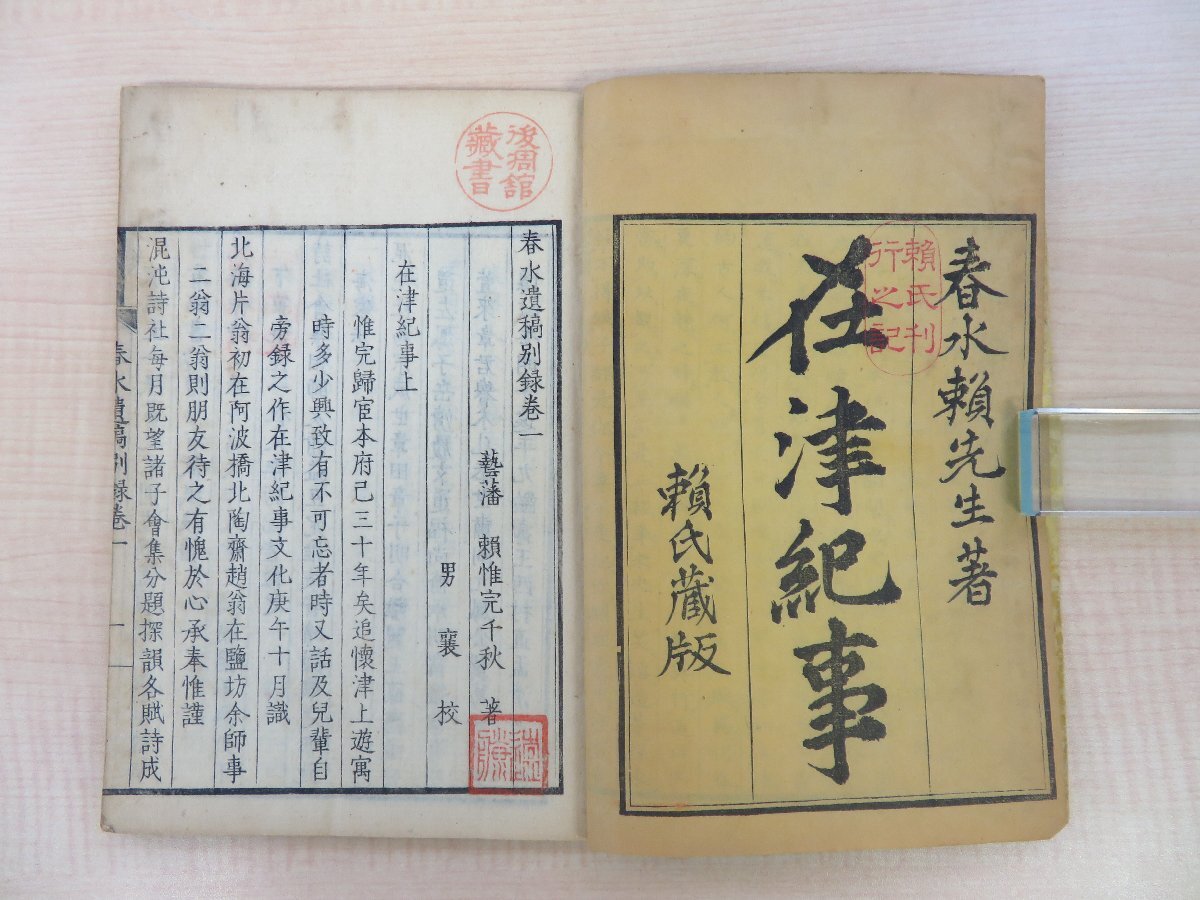 春水賴先生著
在津紀事
賴氏藏版
賴氏刊
行之記
後凋館
藏書
春水遺稿別錄卷一
藝藩 賴惟完千秋 著
男 襄 校
在津紀事上
惟完歸宦本府已三十年矣追懷津上遊寓
時多少興致有不可忘者時又話及兒輩自
旁録之作在津紀事文化庚午十月識
北海片翁初在阿波橋北陶齋趙翁在鹽坊余師事
二翁二翁則朋友待之有愧於心承奉惟謹
混沌詩社每月既望諸子會集分題探韻各賦詩成
春水遺稿別録卷一
一